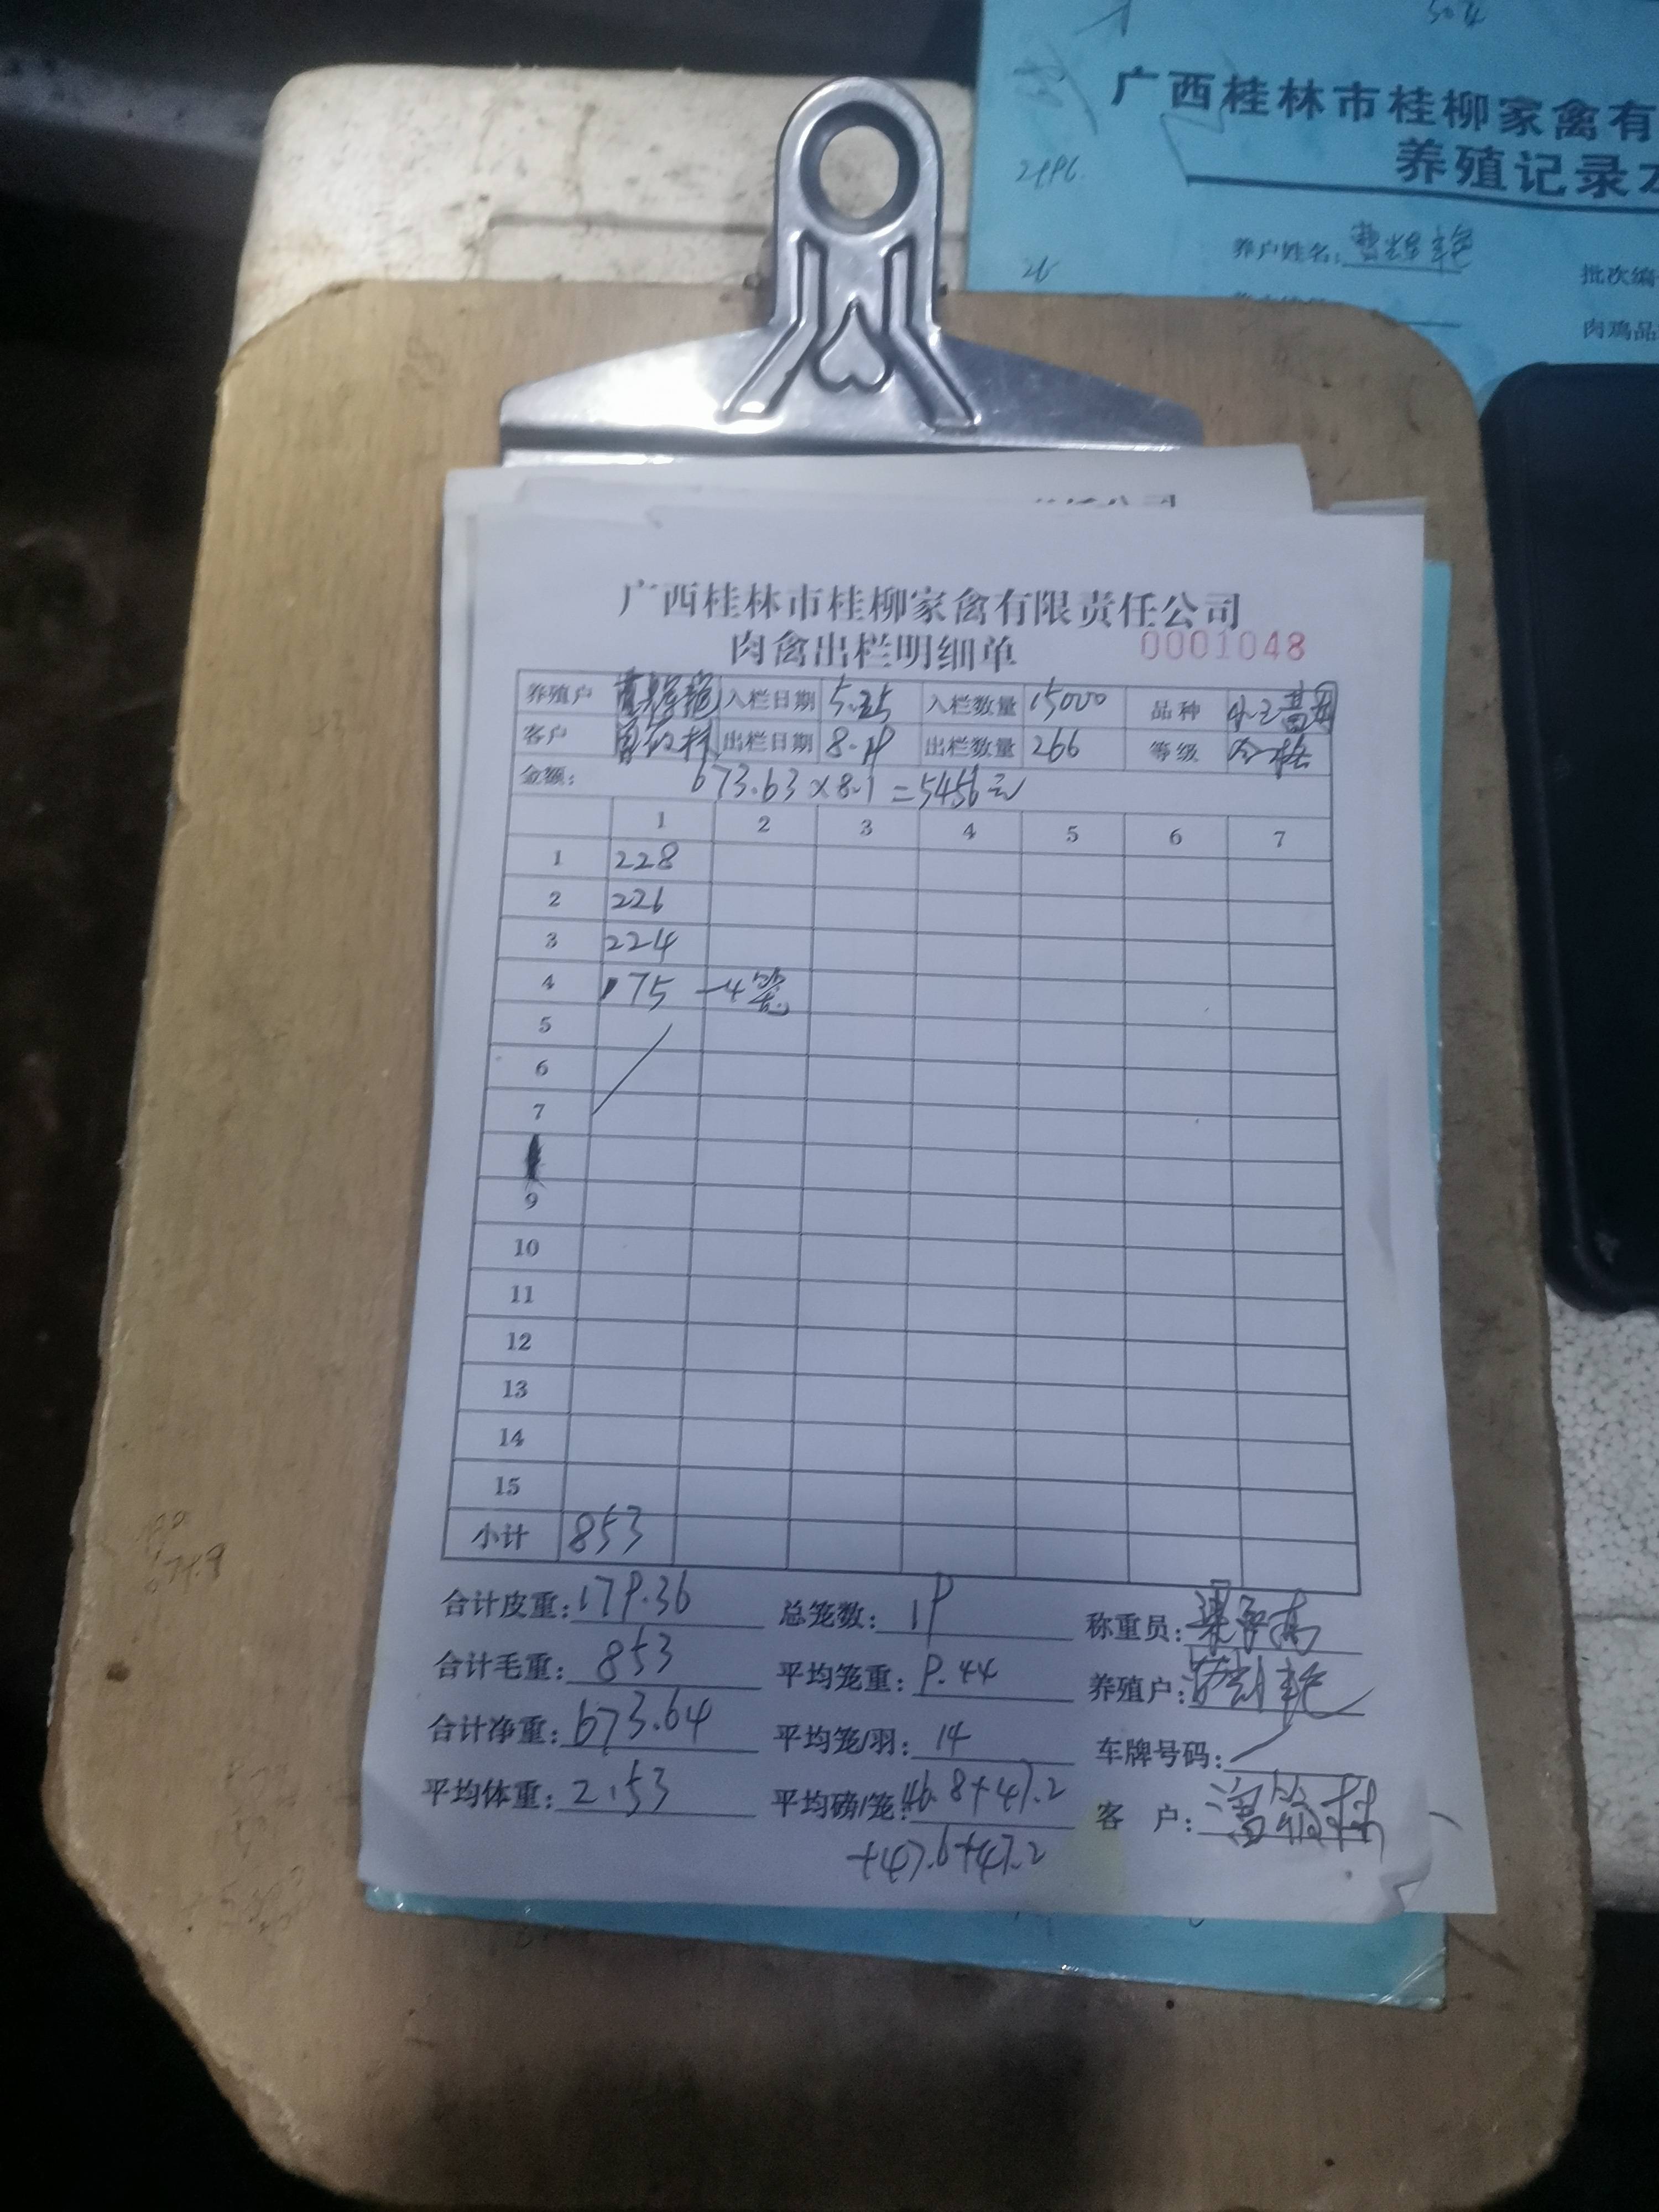 广西桂林市桂柳家禽有
养殖记录
养户姓名:
批次编
肉鸡品
广西桂林市桂柳家禽有限责任公司
肉禽出栏明细单 0001048
养殖户 入栏日期 5.25 入栏数量 15000 品种
客户 出栏日期 8.19 出栏数量 266 等级 合格
金额: 673.63×8.1=5456元
1 2 3 4 5 6 7
1 228
2 226
3 224
4 175 —4笼
5
6
7
9
10
11
12
13
14
15
小计 853
合计皮重: 179.36 总笼数: 19 称重员:
合计毛重: 853 平均笼重: 9.44 养殖户:
合计净重: 673.64 平均笼/羽: 14 车牌号码:
平均体重: 2.53 平均磅/笼: 46.8+47.2 客 户:
+47.6+47.2